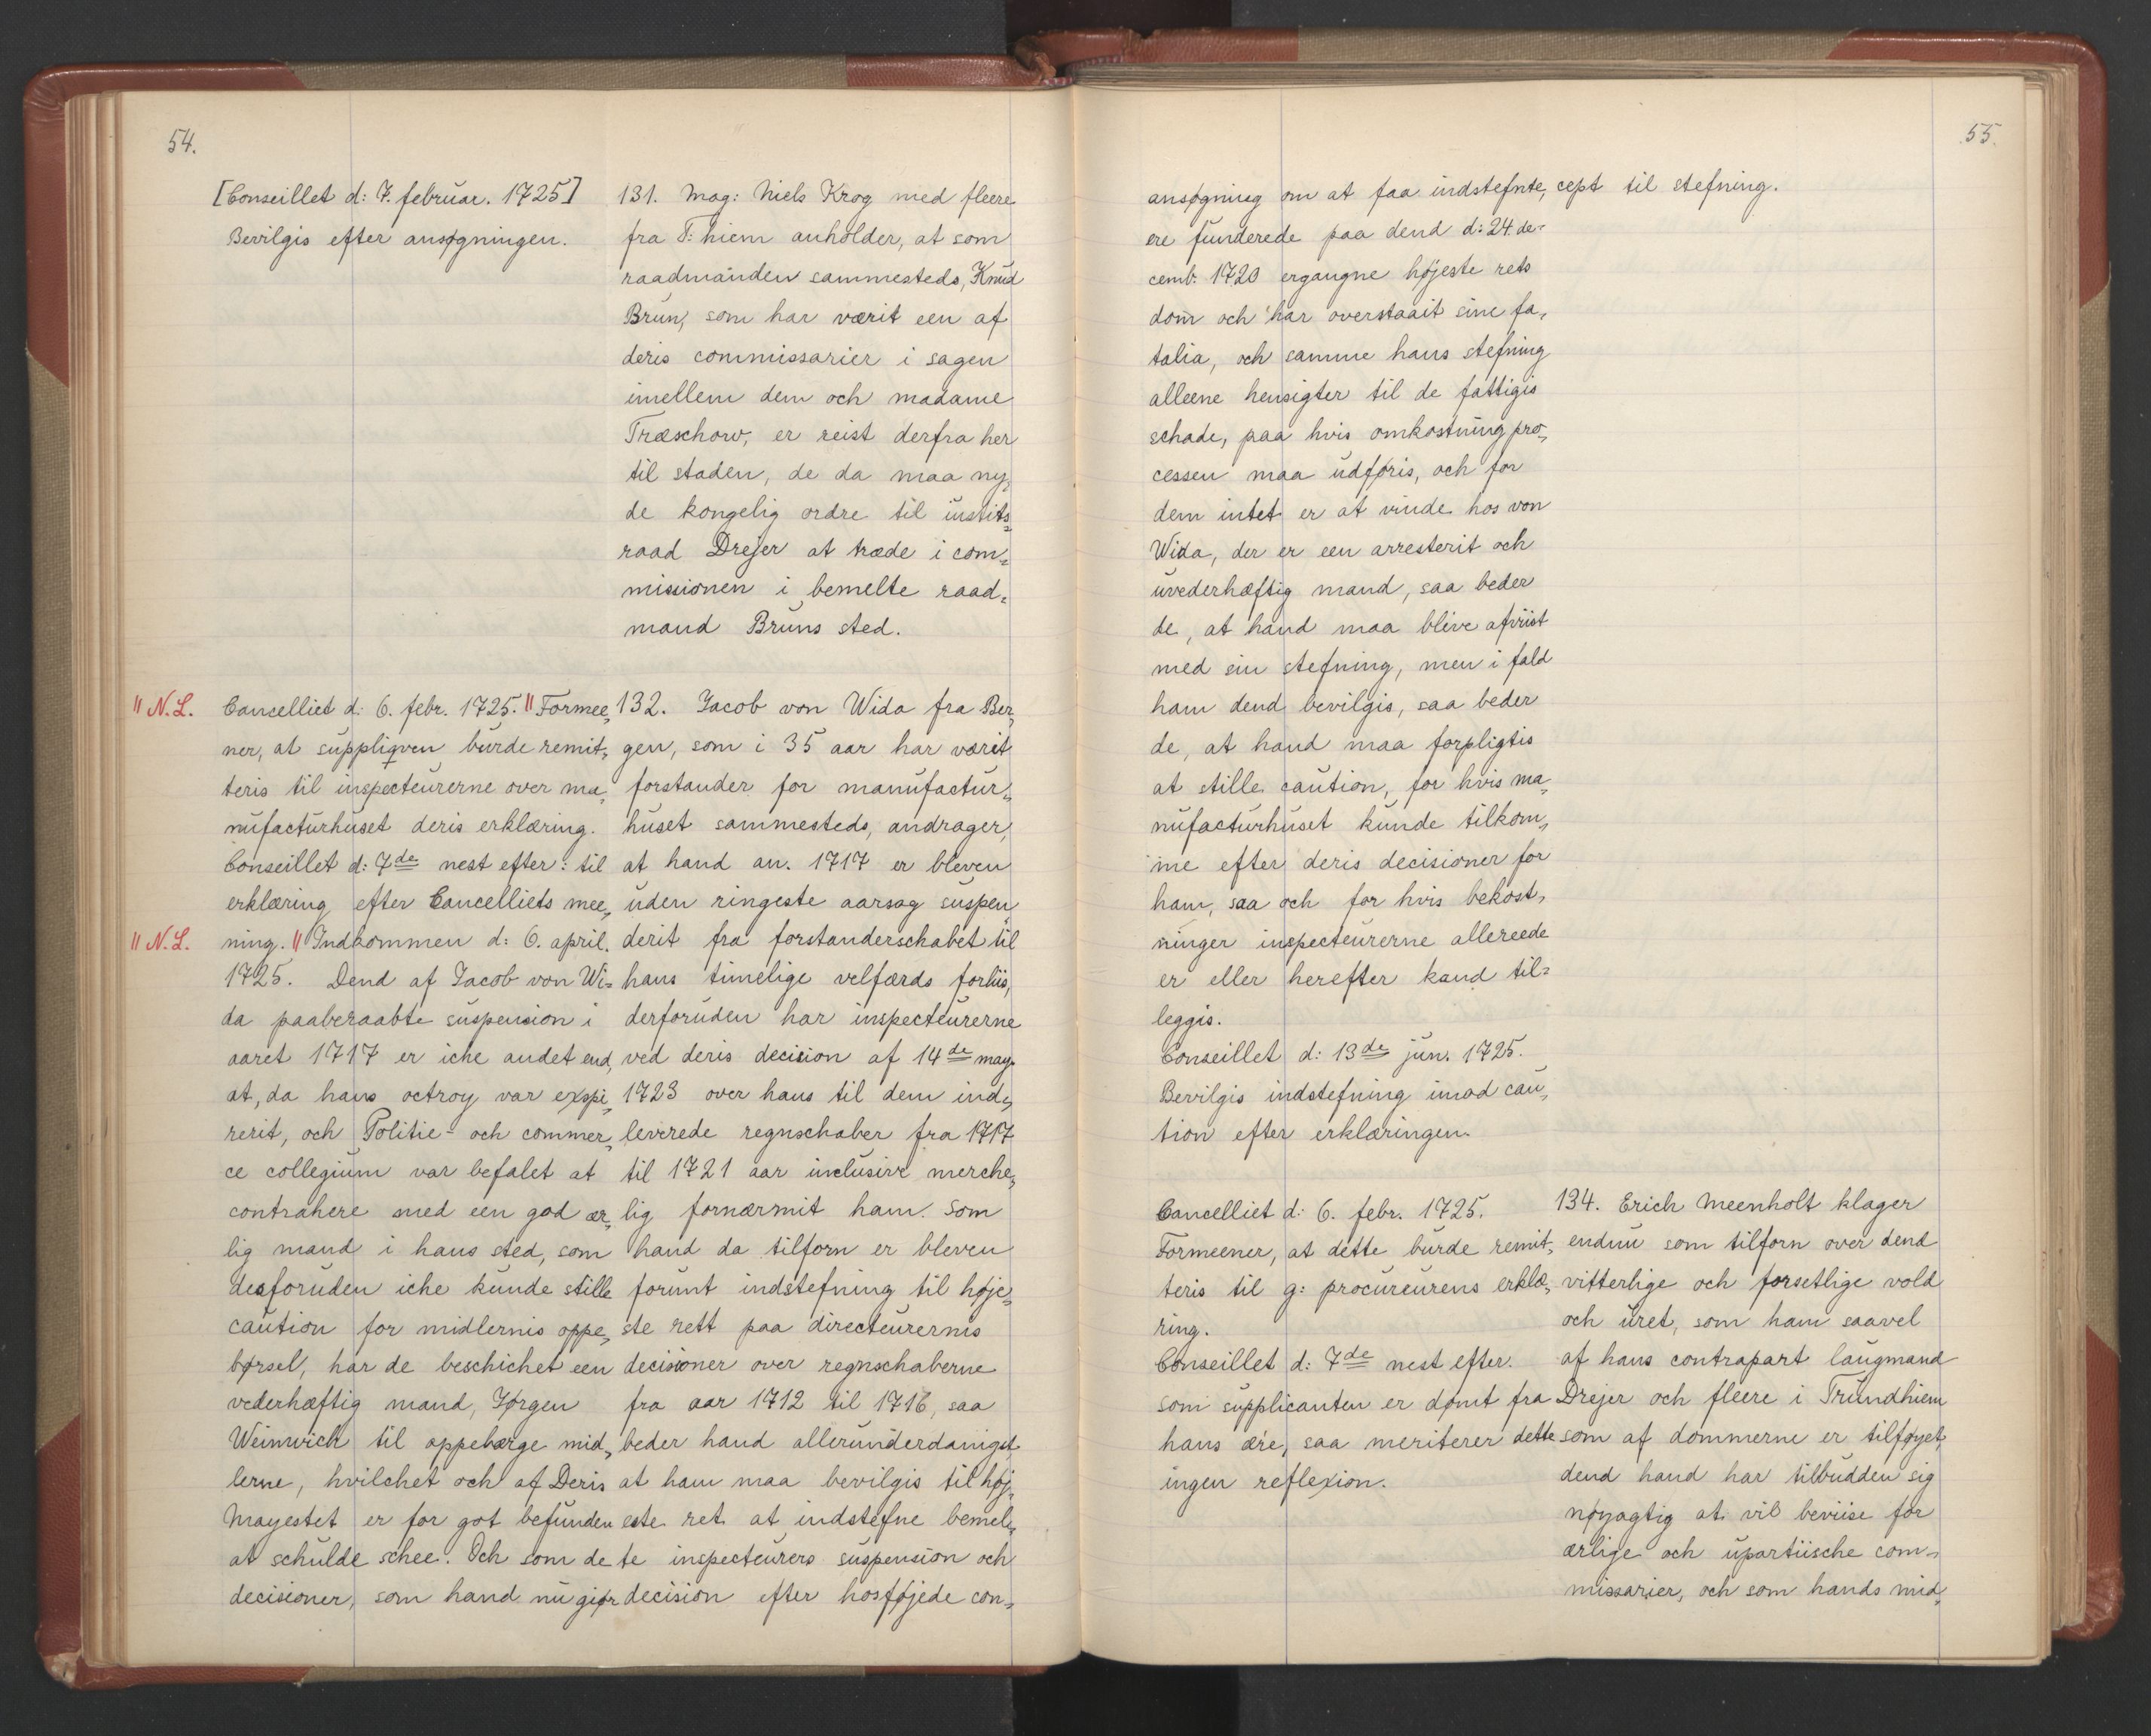 54.
[Conseillet d: 7. februar. 1725]
Bevilgis efter ansøgningen.
131. Mag: Niels Krog med fleere
fra T: hiem anholder, at som
raadmanden sammesteds, Knud
Brun, som har værit een af
deris commissarier i sagen
imellem dem och madame
Træschow, er reist derfra her
til staden, de da maa ny„
de kongelig ordre til iustits=
raad Drejer at træde i com„
missionen i bemelte raad„
mand Bruns sted.
" N. L. Cancelliet d: 6. febr. 1725. " Formee„
ner, at suppliqven burde remit„
teris til inspecteurerne over ma„
nufacturhuset deris erklæring.
Conseillet d: 7de nest efter: til
erklæring efter Cancelliets mee„
" N. L. ning. " Indkommen d: 6. april.
1725. Dend af Jacob von Wi=
da paaberaabte suspension i
aaret 1717 er iche andet end,
at, da hans octroy var exspi„
rerit, och Politie- och commer„
ce collegium var befalet at
contrahere med een god ær„
lig mand i hans sted, som
desforuden iche kunde stille
caution for midlernis oppe„
børsel, har de beschichet een
vederhæftig mand, Jørgen
Weinwich til oppebærge mid„
lerne, hvilchet och af Deris
Mayestet er for got befunden
at schulde schee. Och som de
decisioner, som hand nu giør
132. Jacob von Wida fra Ber„
gen, som i 35 aar har værit
forstander for manufactur„
huset sammesteds, andrager,
at hand an. 1717 er bleven
uden ringeste aarsag suspen„
derit fra forstanderschabet til
hans timelige velfærds forliis,
derforuden har inspecteurerne
ved deris decision af 14de may
1723 over hans til dem ind„
leverede regnschaber fra 1717
til 1721 aar inclusive merche„
lig fornærmit ham. Som
hand da tilforn er bleven
forunt indstefning til høje„
ste rett paa directeurernis
decisioner over regnschaberne
fra aar 1712 til 1716, saa
beder hand allerunderdanigst,
at ham maa bevilgis til høj„
este ret at indstefne bemel„
te inspecteurers suspension och
decision efter hosføjede con„
55.
ansøgning om at faa indstefnte,
ere funderede paa dend d: 24. de=
cemb. 1720 ergangne højeste rets
dom och har overstaait sine fa„
talia, och samme hans stefning
alleene hensigter til de fattigis
schade, paa hvis omkostning pro„
cessen maa udføris, och for
dem intet er at vinde hos von
Wida, der er een arresterit och
uvederhæftig mand, saa beder
de, at hand maa blive afviist
med sin stefning, men i fald
ham dend bevilgis, saa beder
de, at hand maa forpligtis
at stille caution, for hvis ma„
nufacturhuset kunde tilkom„
me efter deris decisioner for
ham, saa och for hvis bekost„
ninger inspecteurerne allereede
er eller herefter kand til=
leggis.
Conseillet d: 13de jun. 1725.
Bevilgis indstefning imod cau„
tion efter erklæringen.
cept til stefning.
Cancelliet d: 6. febr. 1725.
Formeener, at dette burde remit„
teris til g: procureurens erklæ„
ring.
Conseillet d: 7de nest efter.
som supplicanten er dømt fra
hans ære, saa meriterer dette
ingen reflexion.
134. Erich Meenholt klager
endnu som tilforn over dend
vitterlige och forsetlige vold
och uret, som ham saavel
af hans contrapart laugmand
Drejer och fleere i Trundhiem
som af dommerne er tilføyet,
dend hand har tilbudden sig
nøyagtig at vil beviise for
ærlige och upartiische com„
missarier, och som hands mid„